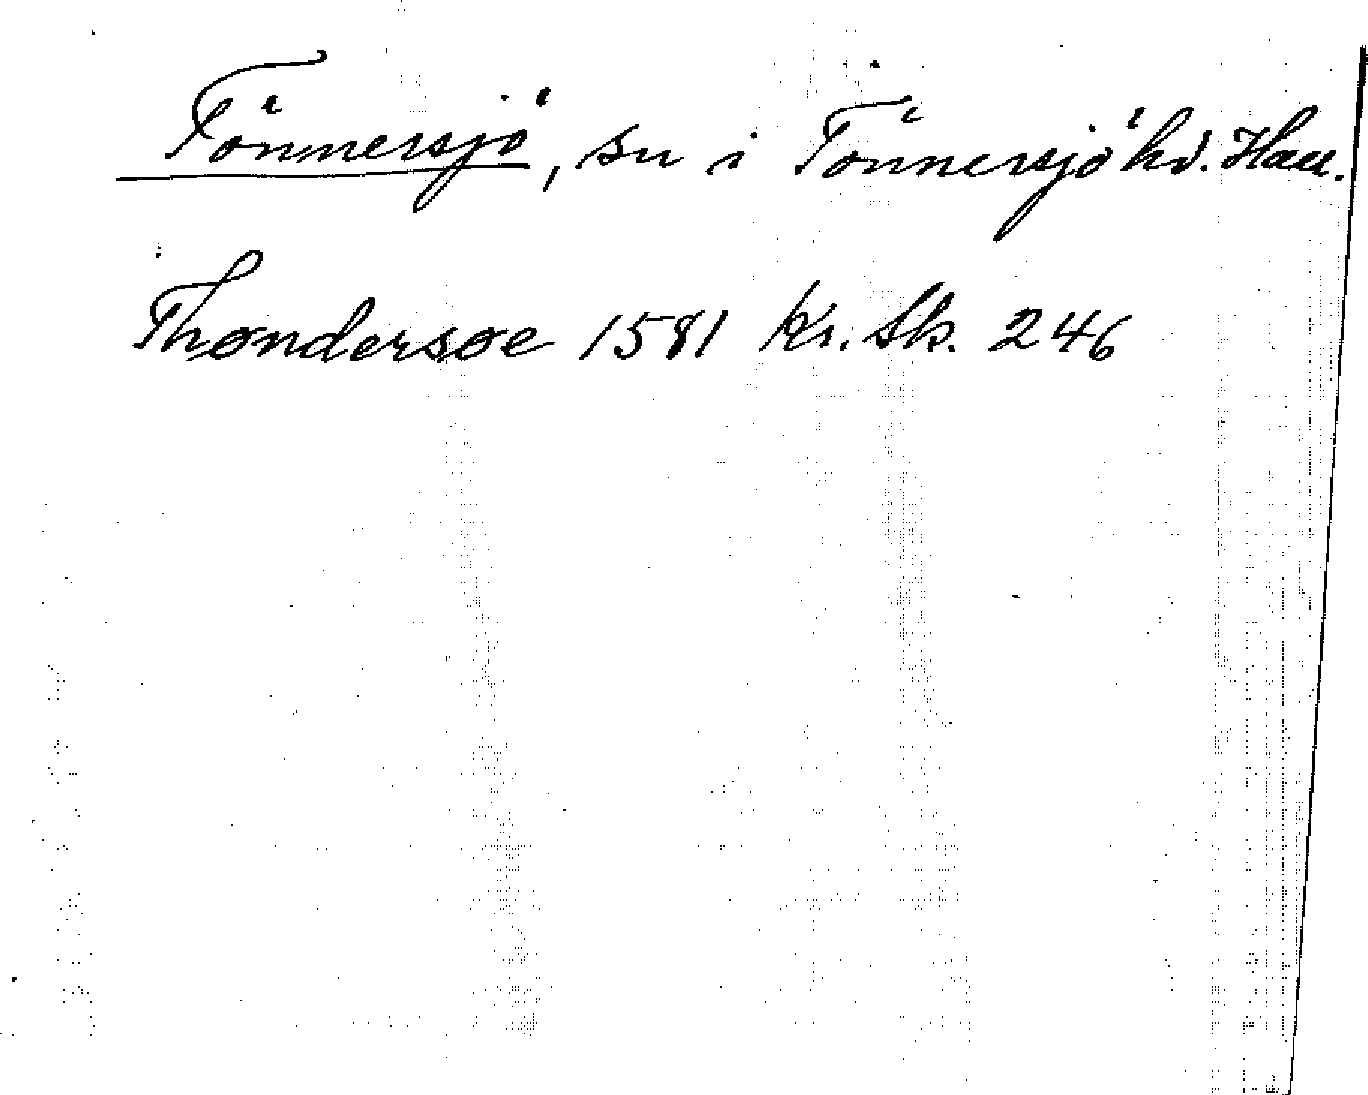 Tönnersjö, sn i Tönnersjö hd. Hall.
Thøndersøe 1581 Kr. Sk. 246